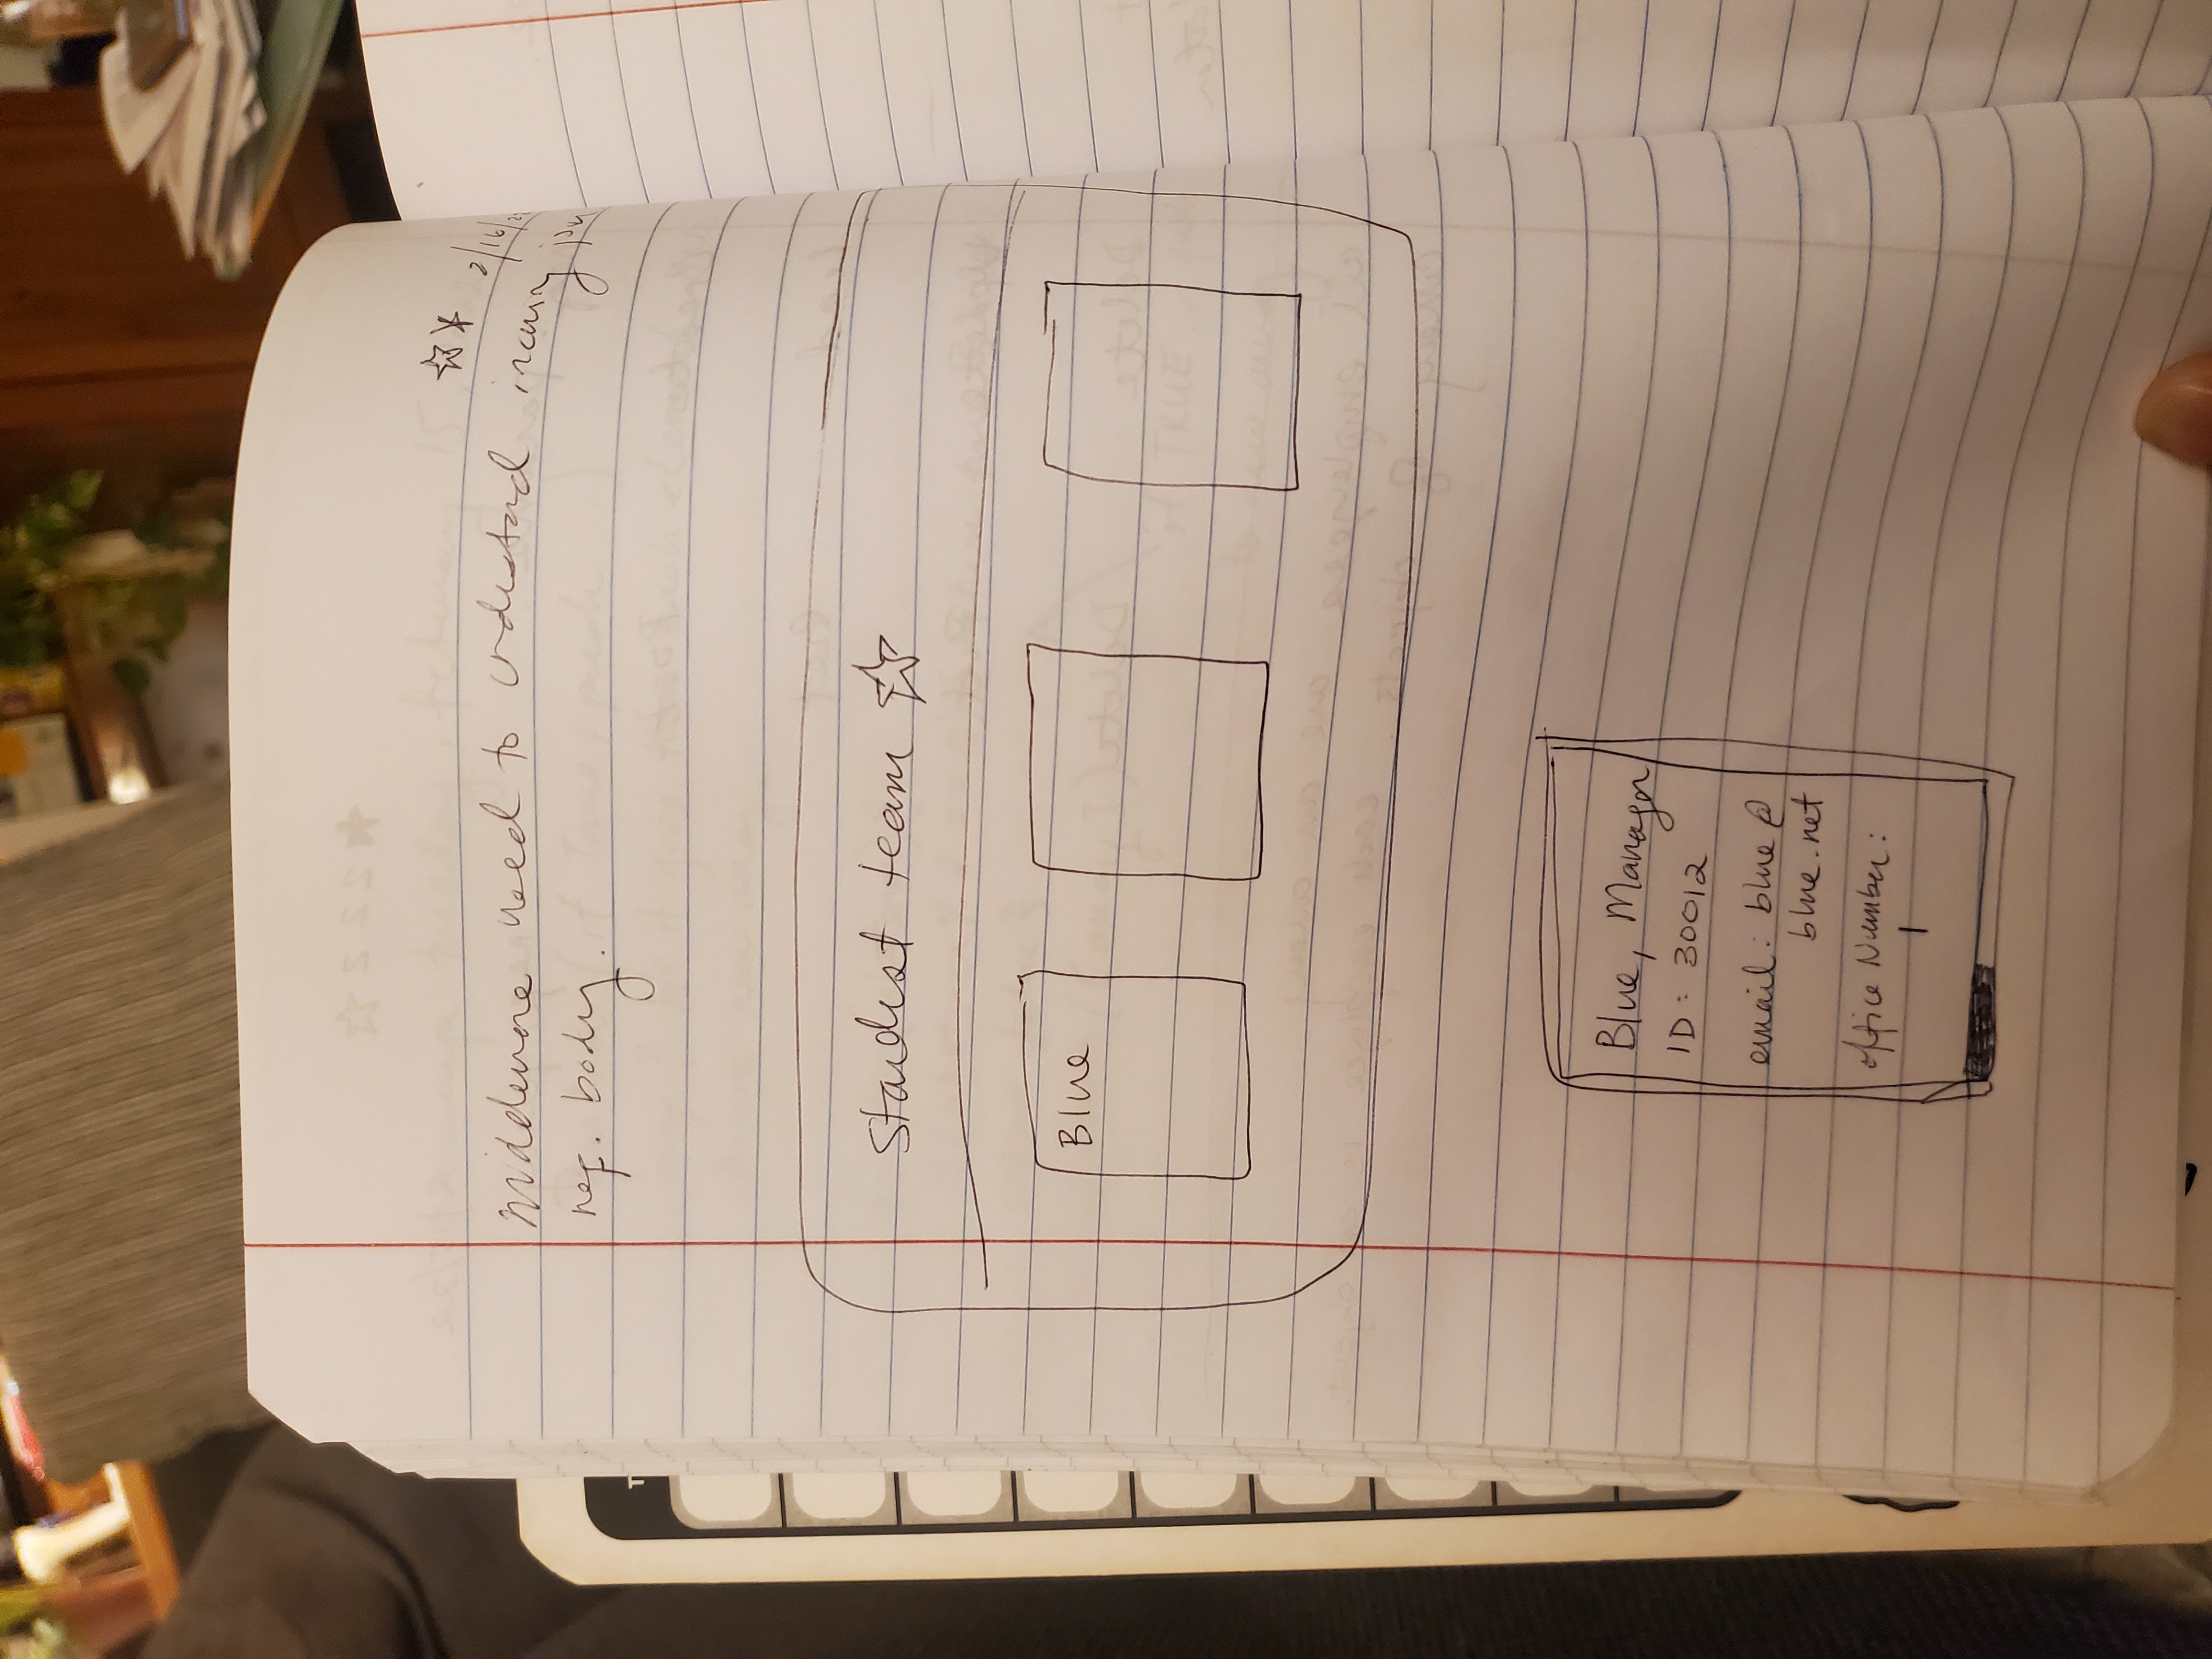 ☆* 2/16/2
Middleware need to understand incoming json
req. body.
Stardust team ☆
Blue
Blue, Manager
ID: 30012
email: blue@
blue.net
office Number:
1